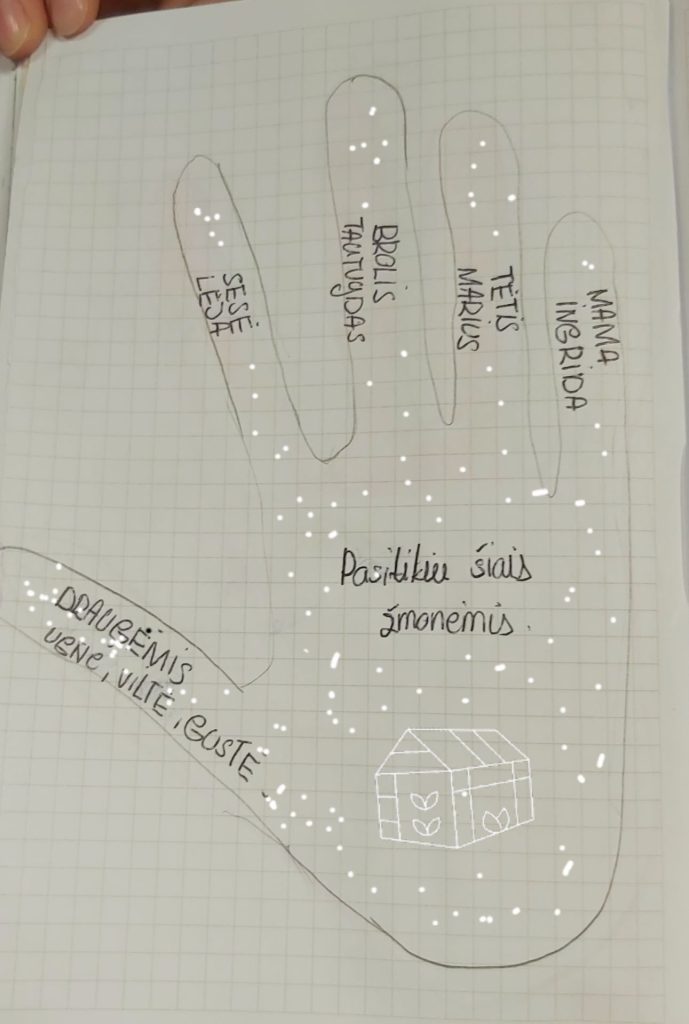 SESĖ
LĖJA
BROLIS
TAUTVYDAS
TĖTIS
MARIUS
MAMA
INGRIDA
Pasitikiu šiais
žmonėmis.
DRAUGĖMIS
UGNE, VILTĖ, GUSTĖ.